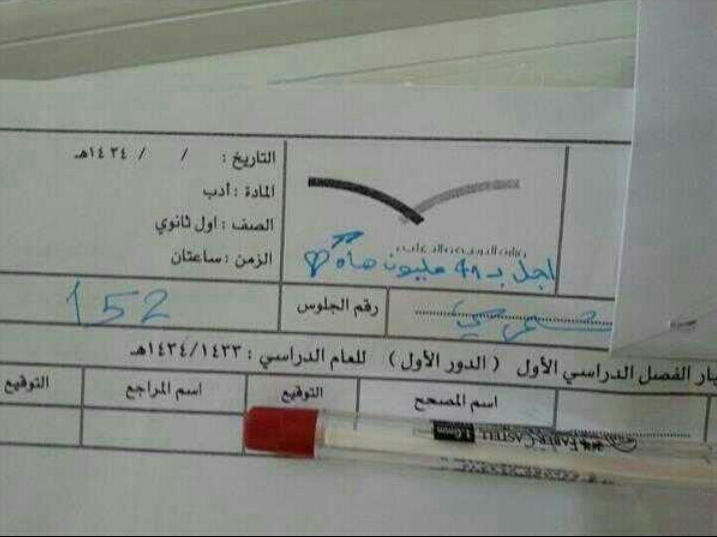 التاريخ : / / ١٤٣٤هـ
المادة : أدب
الصف : اول ثانوي
الزمن : ساعتان
وزارة التربية والتعليم
اجل بـ 48 مليون هاه
رقم الجلوس
152
شمري
بار الفصل الدراسي الأول ( الدور الأول ) للعام الدراسي : ١٤٣٤/١٤٣٣هـ
اسم المصحح
التوقيع
اسم المراجع
التوقيع
FABER-CASTELL